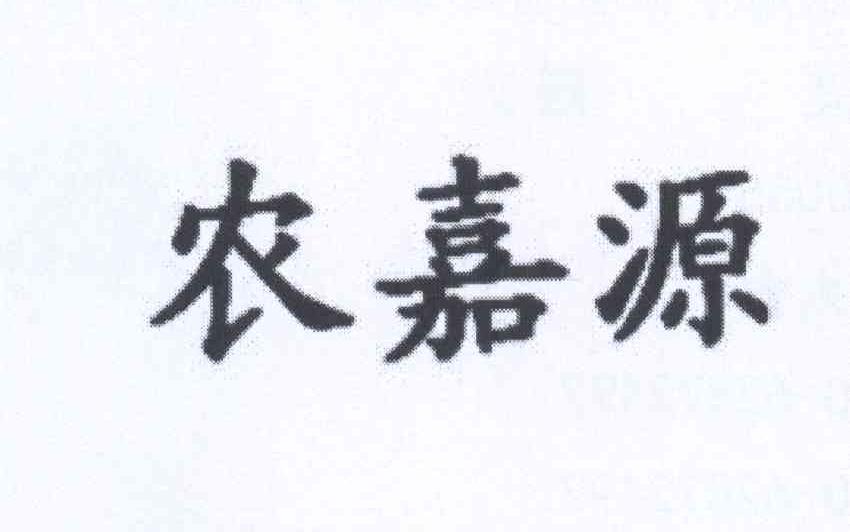 农嘉源